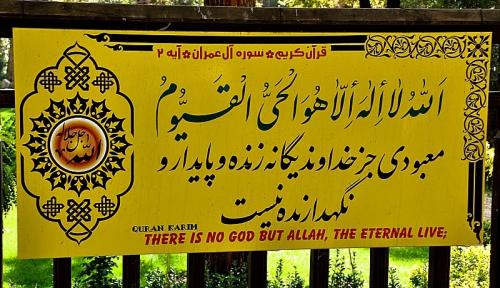 قرآن کریم ✿ سوره آل عمران ✿ آیه ۲
اَللهُ لا إِلٰهَ إِلّا هُوَ الْحَیُّ الْقَیُّومُ
معبودی جز خداوند یگانه زنده و پایدار و
نگهدارنده نیست
الله جل جلاله
QURAN KARIM
THERE IS NO GOD BUT ALLAH, THE ETERNAL LIVE;